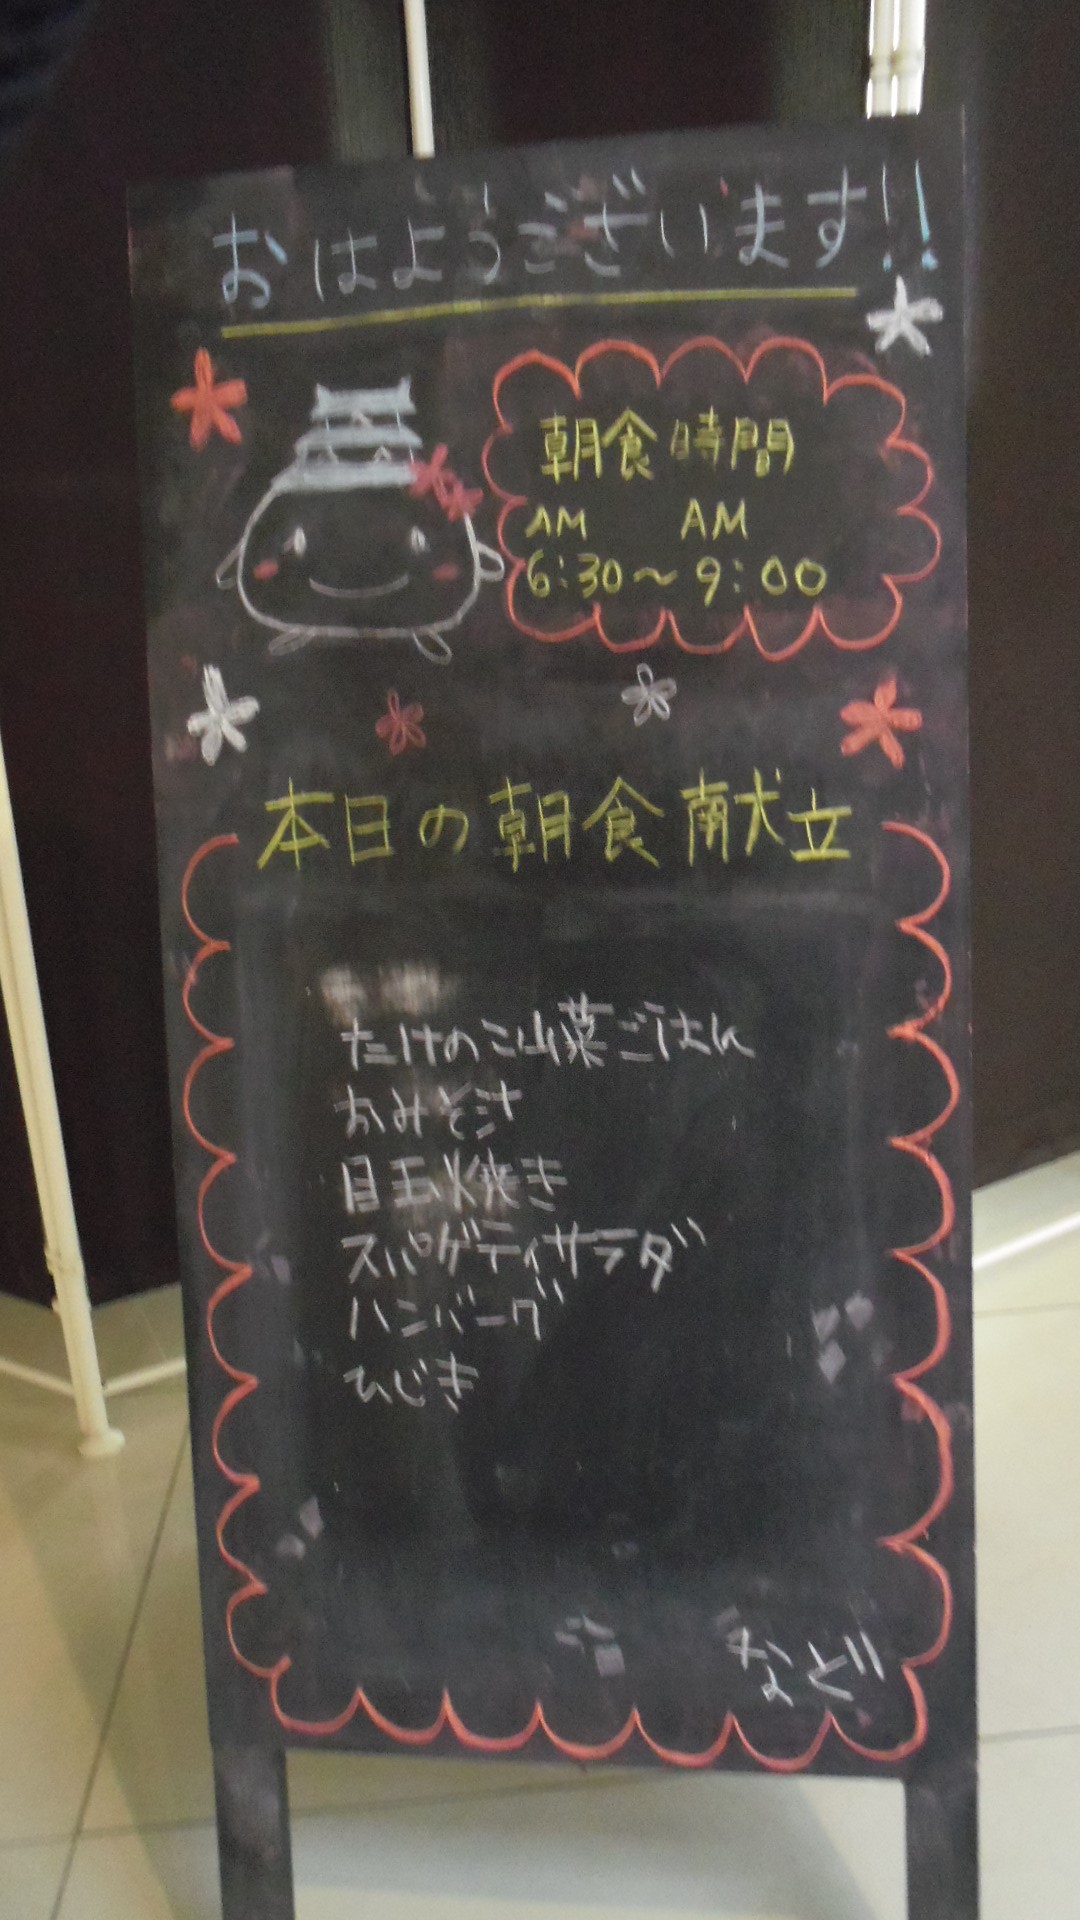 おはようございます!!
朝食時間
AM AM
6:30～9:00
本日の朝食献立
たけのこ山菜ごはん
おみそ汁
目玉焼き
スパゲティサラダ
ハンバーグ
ひじき
など